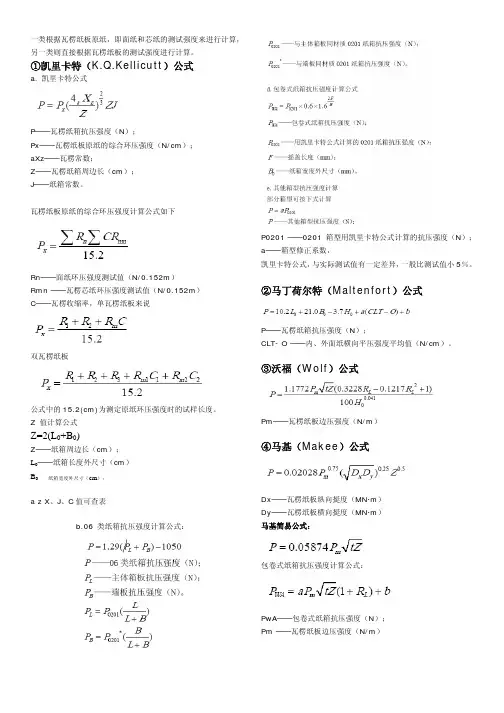 一类根据瓦楞纸板原纸，即面纸和芯纸的测试强度来进行计算，
另一类则直接根据瓦楞纸板的测试强度进行计算。
①凯里卡特（K.Q.Kellicutt）公式
a. 凯里卡特公式
P=P_x(4_a X_z/Z)^{2/3}ZJ
P——瓦楞纸箱抗压强度（N）；
Px——瓦楞纸板原纸的综合环压强度（N/cm）；
aXz——瓦楞常数；
Z——瓦楞纸箱周边长（cm）；
J——纸箱常数。
瓦楞纸板原纸的综合环压强度计算公式如下
P_x=∑R_n∑CR_mn/15.2
Rn——面纸环压强度测试值（N/0.152m）
Rmn ——瓦楞芯纸环压强度测试值（N/0.152m）
C——瓦楞收缩率，单瓦楞纸板来说
P_x=(R_1+R_2+R_mC)/15.2
双瓦楞纸板
P_x=(R_1+R_2+R_3+R_m1C_1+R_m2C_2)/15.2
公式中的15.2(cm)为测定原纸环压强度时的试样长度。
Z 值计算公式
Z=2(L₀+B₀)
Z——纸箱周边长（cm）；
L₀——纸箱长度外尺寸（cm）
B₀ 纸箱宽度外尺寸（cm）。
a z X、J、C值可查表
b.06 类纸箱抗压强度计算公式：
P=1.29(P_L+P_B)-1050
P——06类纸箱抗压强度（N）；
P_L——主体箱板抗压强度（N）；
P_B——端板抗压强度（N）。
P_L=P_0201(L/(L+B))
P_B=P_0201*(B/(L+B))
P_0201——与主体箱板同材质0201纸箱抗压强度（N）；
P_0201*——与端板同材质0201纸箱抗压强度（N）。
d.包卷式纸箱抗压强度计算公式
——包卷式纸箱抗压强度（N）；
P_0201——用凯里卡特公式计算的0201纸箱抗压强度（N）；
F——摇盖长度（mm）；
B_0——纸箱宽度外尺寸（mm）。
e.其他箱型抗压强度计算
部分箱型可按下式计算
P=aP_0201
P——其他箱型抗压强度（N）；
P0201 ——0201 箱型用凯里卡特公式计算的抗压强度（N）；
a——箱型修正系数，
凯里卡特公式，与实际测试值有一定差异，一般比测试值小5％。
②马丁荷尔特（Maltenfort）公式
P=10.2L_0+21.0B_0-3.7H_0+a(CLT-O)+b
P——瓦楞纸箱抗压强度（N）；
CLT- O ——内、外面纸横向平压强度平均值（N/cm）。
③沃福（Wolf）公式
P=1.1772P_m√tZ(0.3228R_L-0.1217R_L²+1)/100H_0^{0.041}
Pm——瓦楞纸板边压强度（N/m）
④马基（Makee）公式
P=0.02028P_m^{0.75}(√D_xD_y)^{0.25}Z^{0.5}
Dx——瓦楞纸板纵向挺度（MN·m）
Dy——瓦楞纸板横向挺度（MN·m）
马基简易公式：
P=0.05874P_m√tZ
包卷式纸箱抗压强度计算公式：
P_WA=aP_m√tZ(1+R_L)+b
PwA——包卷式纸箱抗压强度（N）；
Pm ——瓦楞纸板边压强度（N/m）